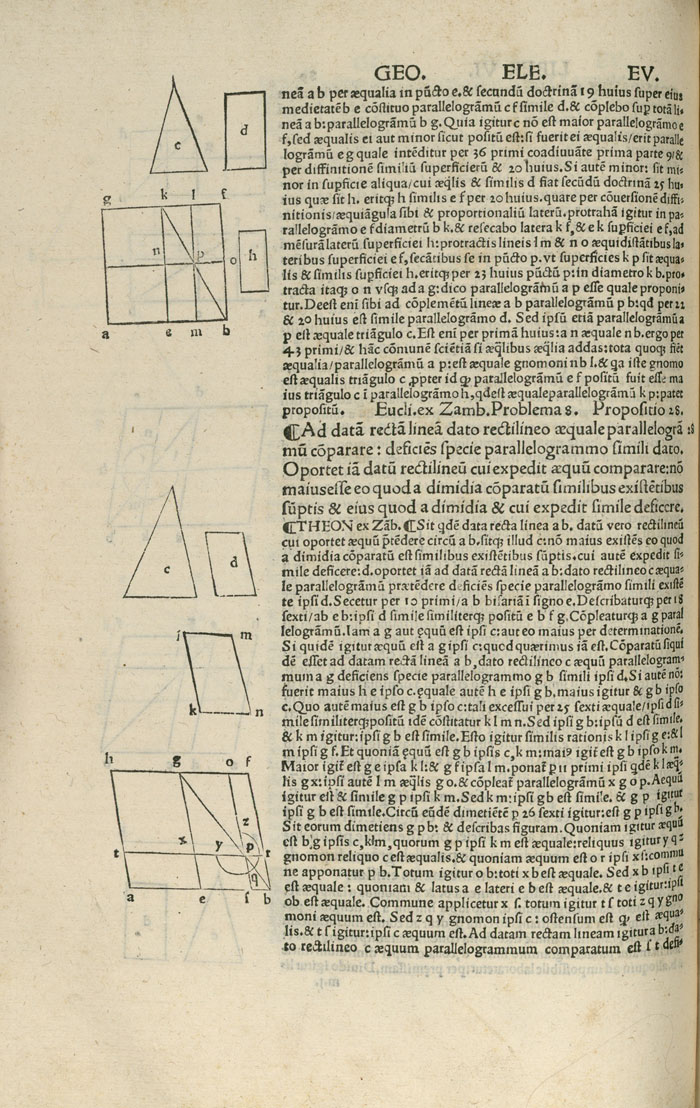 GEO. ELE. EV.
neã a b per æqualia in pũcto e.& secundũ doctrinã 19 huius super eius
medietatẽ b e cõstituo parallelogrãmũ c f simile d.& cõplebo sup totã li⸗
neã a b:parallelogrãmũ b g. Quia igitur c nõ est maior parallelogrãmo e
f,sed æqualis ei aut minor sicut positũ est:si fuerit ei æqualis/erit paralle
logrãmũ e g quale intẽditur per 36 primi coadiuuãte prima parte 9/&
per diffinitionẽ similiũ superficierũ & 20 huius.Si autẽ minor: sit mi⸗
nor in supficie aliqua/cui æq̃lis & similis d fiat secũdũ doctrinã 25 hu⸗
ius quæ sit h. eritq; h similis e f per 20 huius.quare per cõuersionẽ diffi⸗
nitionis/æquiãgula sibi & proportionaliũ laterũ.protrahã igitur in pa⸗
rallelogrãmo e f diametrũ b k.& resecabo latera k f,& e k supficiei e f,ad
mẽsurã laterũ superficiei h:protractis lineis l m & n o æquidistãtibus la⸗
teribus superficiei e f,secãtibus se in pũcto p.vt superficies k p sit æqua⸗
lis & similis supficiei h.eritq; per 23 huius pũctũ p:in diametro k b.pro⸗
tracta itaq; o n vsq; ad a g:dico parallelogrãmũ a p esse quale proponi⸗
tur.Deest eni sibi ad cõplemẽtũ lineæ a b parallelogrãmũ p b:qd per 22
& 20 huius est simile parallelogrãmo d. Sed ipsũ etiã parallelogrãmũ a
p est æquale triãgulo c.Est eni per primã huius:a n æquale n b.ergo per
43 primi/& hãc cõmunẽ sciẽtiã si æq̃libus æq̃lia addas:tota quoq; fiẽt
æqualia/parallelogrãmũ a p:est æquale gnomoni n b l.& qa iste gnomo
est æqualis triãgulo c ,ppter id q parallelogrãmũ e f positũ fuit esse ma
ius triãgulo c ĩ parallelogrãmo h,qd est æquale parallelogrãmũ k p:patet
propositũ. Eucli.ex Zamb.Problema 8. Propositio 28.
¶Ad datã rectã lineã dato rectilineo æquale parallelogrã 28
mũ cõparare : deficiẽs specie parallelogrammo simili dato.
Oportet iã datũ rectilineũ cui expedit æquũ comparare:nõ
maius esse eo quod a dimidia cõparatũ similibus existẽtibus
sũptis & eius quod a dimidia & cui expedit simile deficere.
¶THEON ex Zãb.¶Sit qdẽ data recta linea a b. datũ vero rectilineũ
cui oportet æquũ p̃tẽdere circũ a b.sitq; illud c:nõ maius existẽs eo quod
a dimidia cõparatũ est similibus existẽtibus sũptis.cui autẽ expedit si⸗
mile deficere:d.oportet iã ad datã rectã lineã a b:dato rectilineo c æqua⸗
le parallelogrãmũ prætẽdere deficiẽs specie parallelogrãmo simili existẽ
te ipsi d.Secetur per 10 primi/a b bifariã ĩ signo e.Describaturq; per 18
sexti/ab e b:ipsi d simile similiterq; positũ e b f g.Cõpleaturq; a g paral
lelogrãmũ.Iam a g aut ęquũ est ipsi c:aut eo maius per determinationẽ.
Si quidẽ igitur æquũ est a g ipsi c:quod quærimus iã est.Cõparatũ siqui
dẽ esset ad datam rectã lineã a b,dato rectilineo c æquũ parallelogram⸗
mum a g deficiens specie parallelogrammo g b simili ipsi d.Si autẽ nõ:
fuerit maius h e ipso c.ęquale autẽ h e ipsi g b.maius igitur & g b ipso
c.Quo autẽ maius est g b ipso c:tali excessui per 25 sexti æquale/ipsi d si⸗
mile similiterq; positũ idẽ cõstitatur k l m n.Sed ipsi g b:ipsũ d est simile.
& k m igitur:ipsi g b est simile.Esto igitur similis rationis k l ipsi g e:& l
m ipsi g f. Et quoniã ęquũ est g b ipsis c,k m:mai9 igit̃ est g b ipso k m.
Maior igit̃ est g e ipsa k l:& g f ipsa l m.ponat̃ p 11 primi ipsi qdẽ k l æq̃⸗
lis g x:ipsi autẽ l m æq̃lis g o.& cõpleat̃ parallelogrãmũ x g o p.Aequũ
igitur est & simile g p ipsi k m.Sed k m:ipsi g b est simile. & g p igitur
ipsi g b est simile.Circũ eũdẽ dimetiẽtẽ p 26 sexti igitur:est g p ipsi g b.
Sit eorum dimetiens g p b: & describas figuram. Quoniam igitur æquũ
est b g ipsis c,klm,quorum g p ipsi k m est æquale:reliquus igitur y q z
gnomon reliquo c est æqualis.& quoniam æquum est o r ipsi x s:commu
ne apponatur p b.Totum igitur o b:toti x b est æquale. Sed x b ipsi t e
est æquale : quoniam & latus a e lateri e b est æquale.& t e igitur:ipsi
ob est æquale. Commune applicetur x s. totum igitur t s toti z q y gno
moni æquum est. Sed z q y gnomon ipsi c : ostensum est q est æqua⸗
lis.& t s igitur:ipsi c æquum est.Ad datam rectam lineam igitur a b:da⸗
to rectilineo c æquum parallelogrammum comparatum est s t defi⸗
c
d
g k l f
n p o h
a e m b
c
d
l m
k n
h g o f
z
t x y p r
q
a e s b